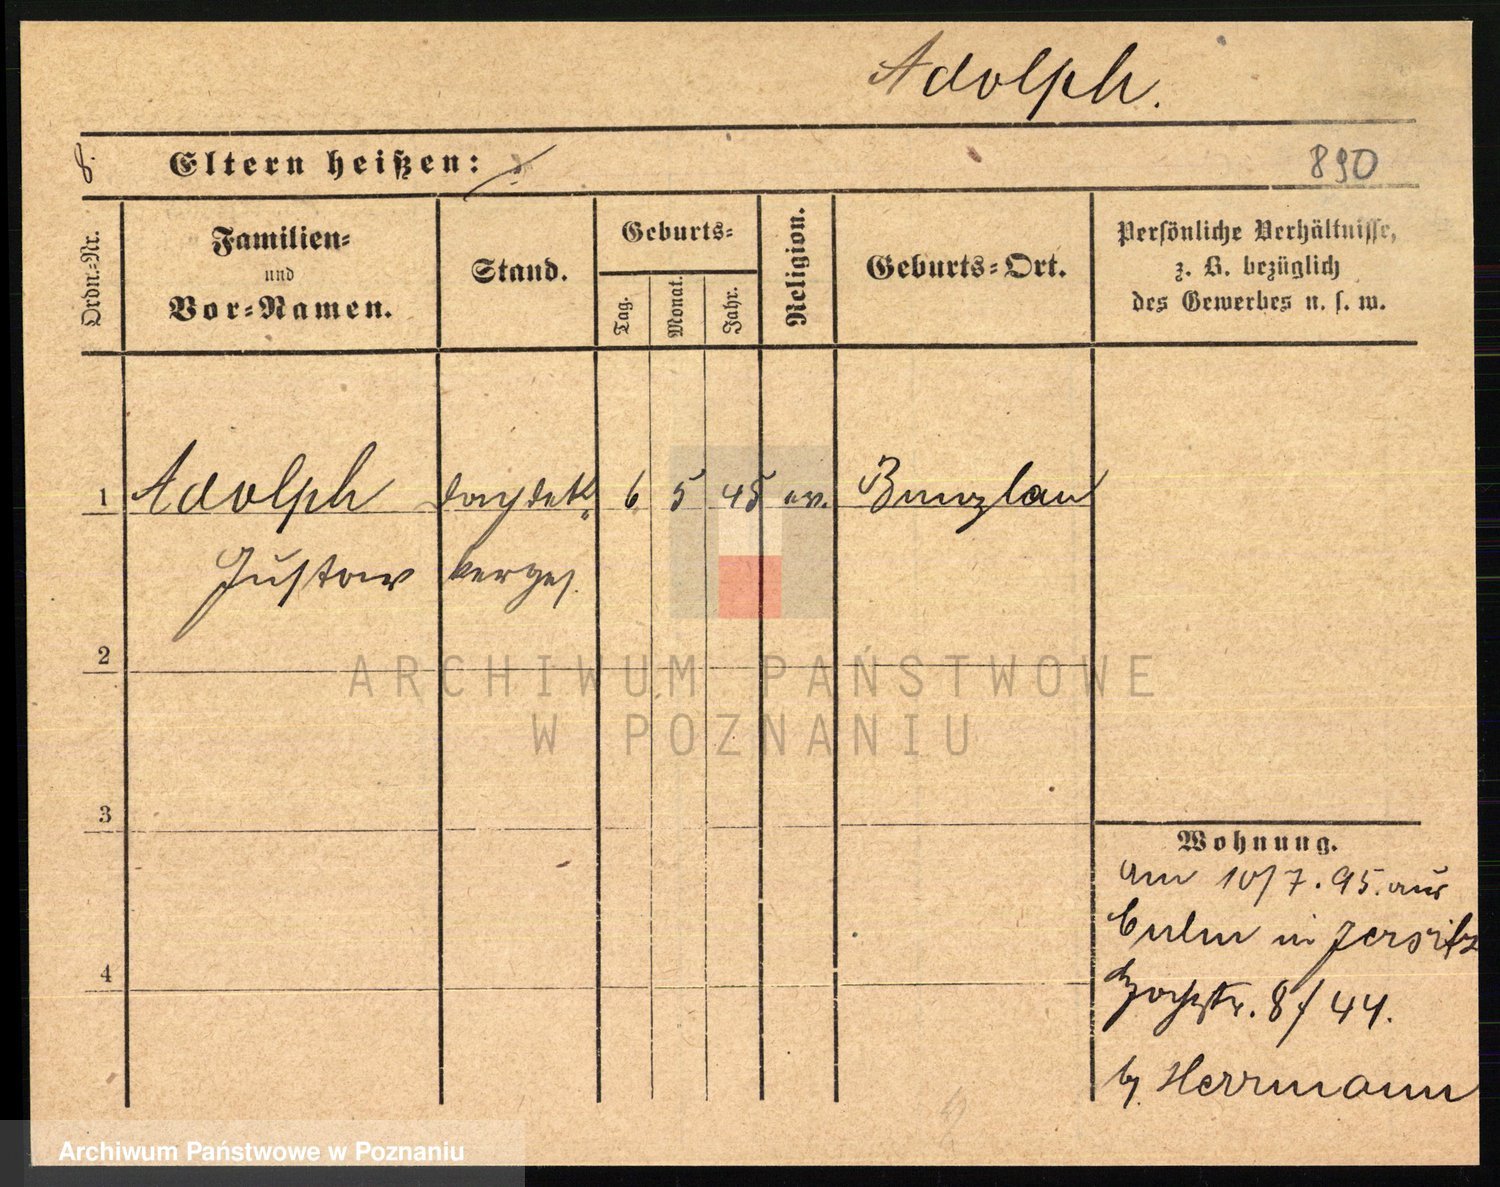 Adolph.
8. Eltern heißen:
890
Ordn.-Nr.
Familien-
und
Vor-Namen.
Stand.
Geburts-
Tag.
Monat.
Jahr.
Religion.
Geburts-Ort.
Persönliche Verhältnisse,
z. B. bezüglich
des Gewerbes u. s. w.
1 Adolph Dachdek 6 5 45 ev. Bunzlau
Gustav kerges.
2
3
4
Wohnung.
am 10/7. 95. aus
Culm in Jersitz
Hochstr. 8/44.
b/ Herrmann
ARCHIWUM PAŃSTWOWE
W POZNANIU
Archiwum Państwowe w Poznaniu